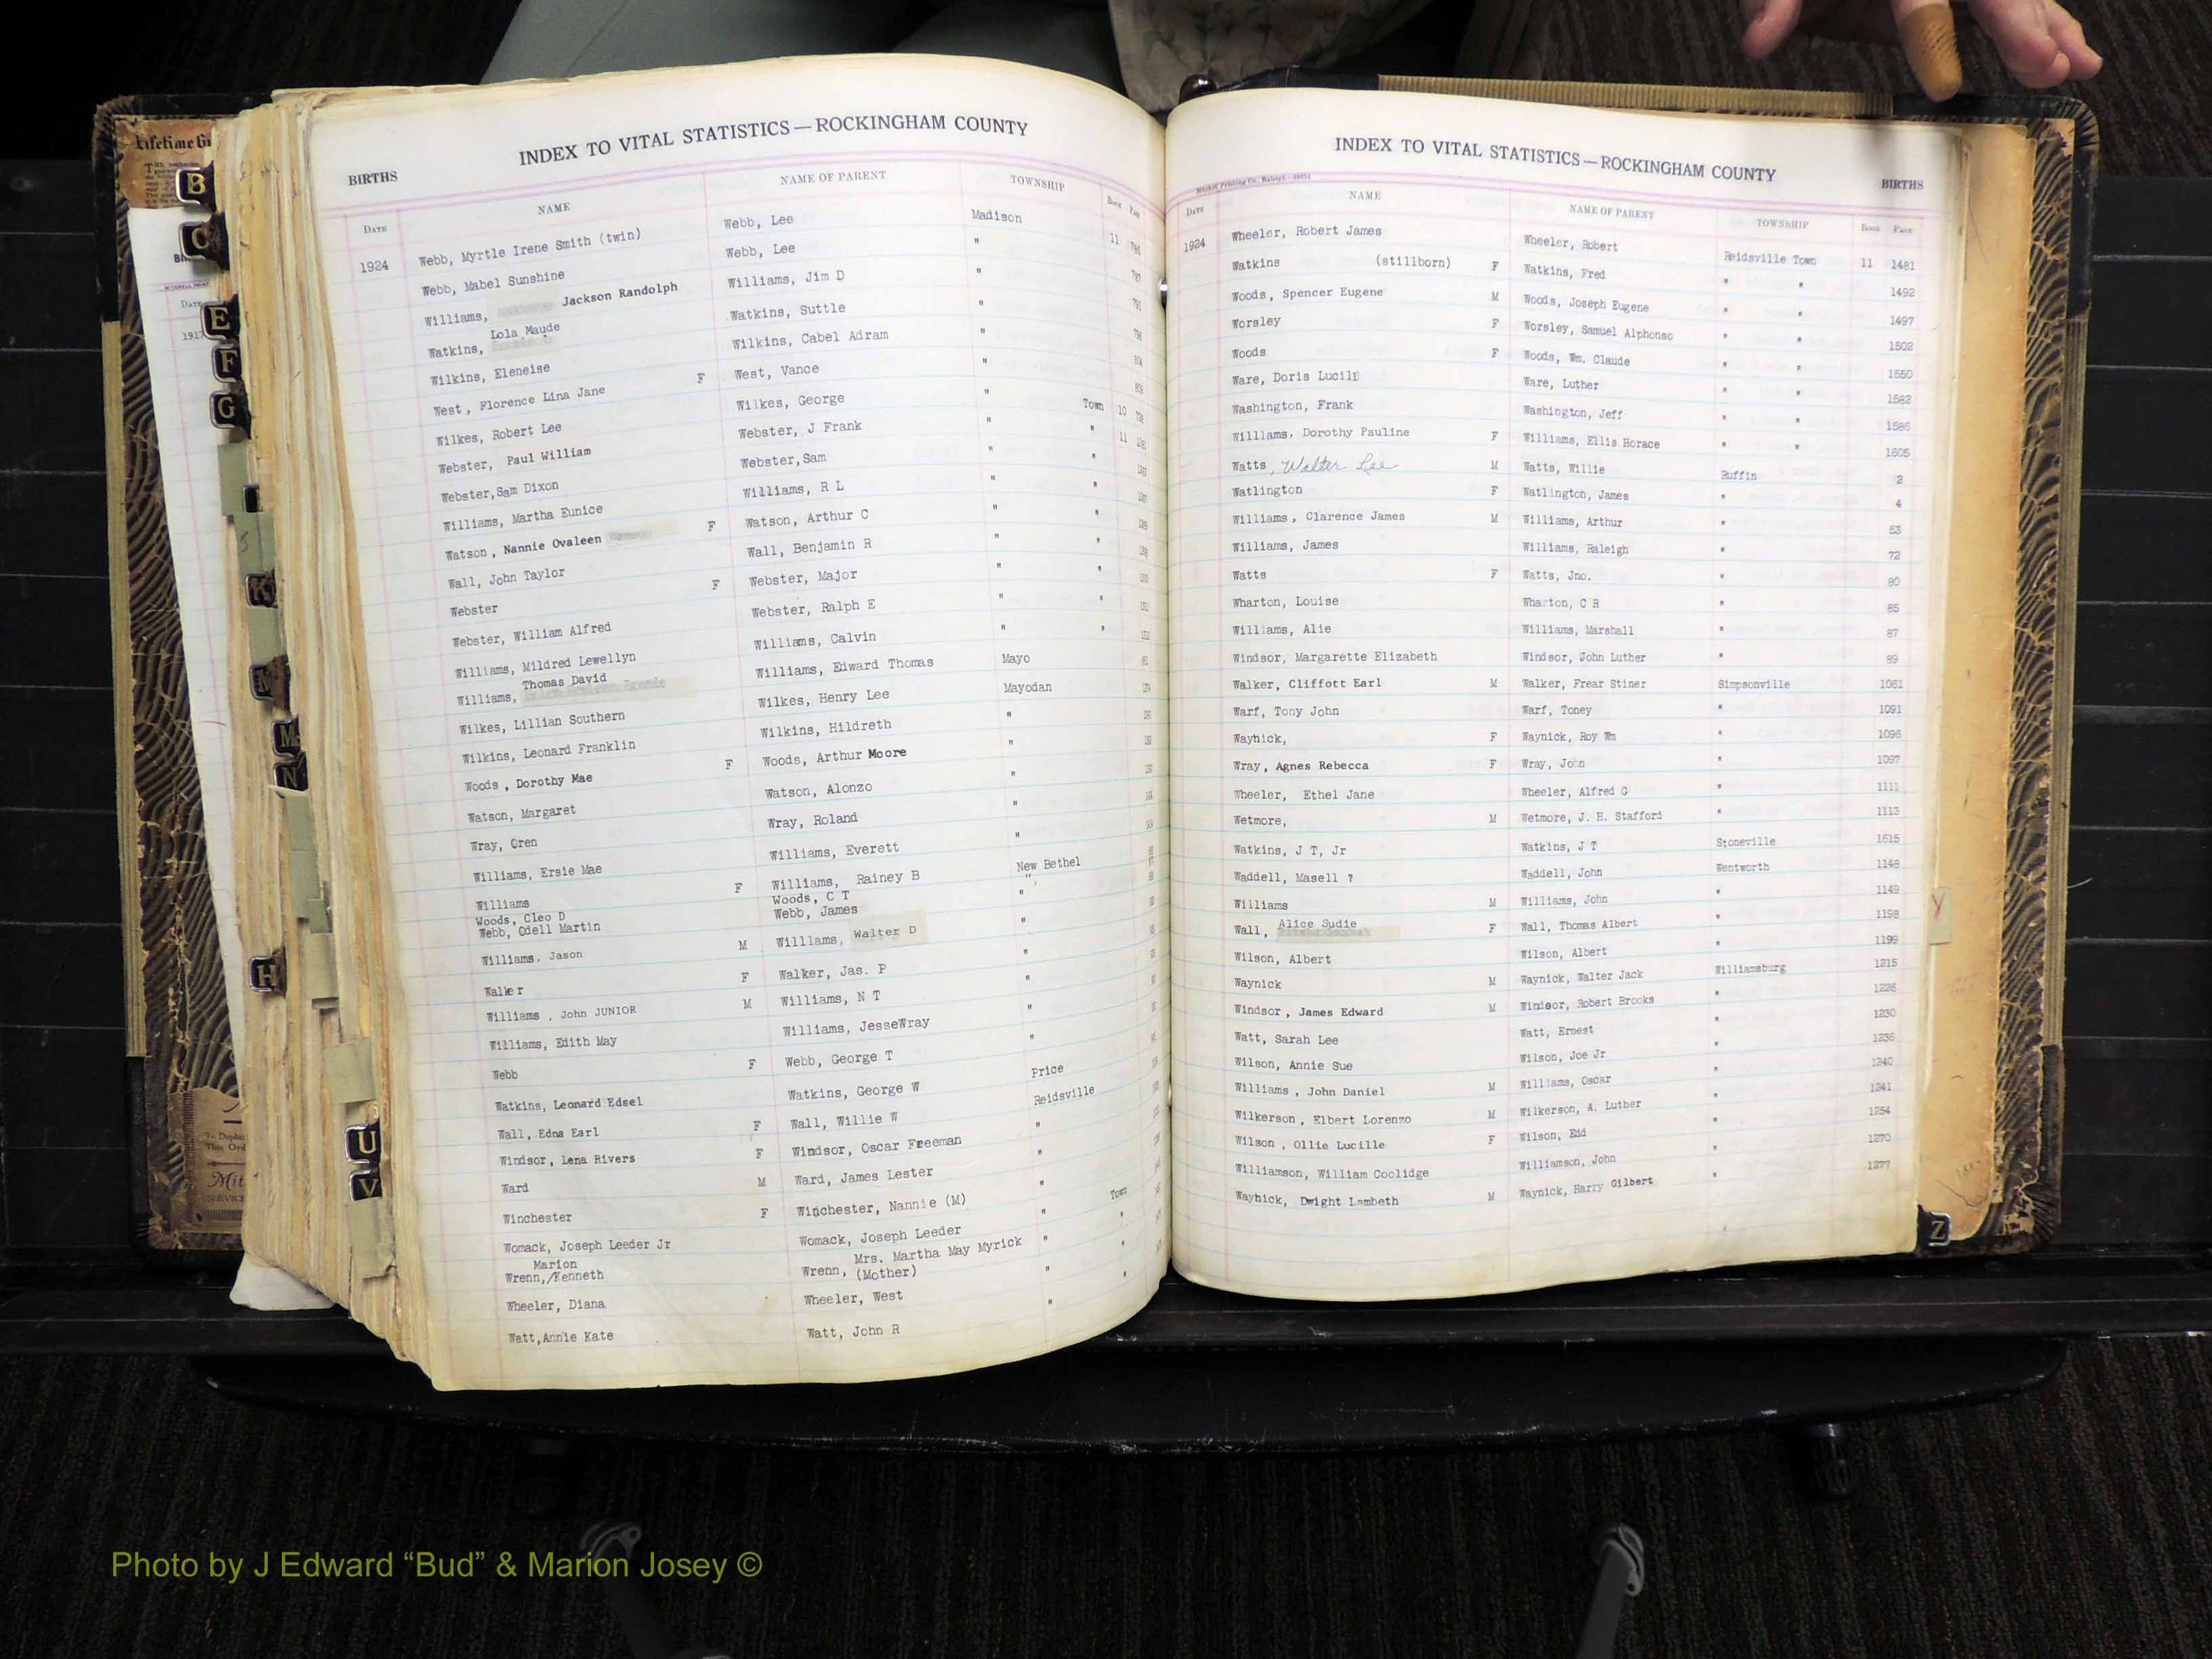 INDEX TO VITAL STATISTICS — ROCKINGHAM COUNTY
BIRTHS
DATE NAME NAME OF PARENT TOWNSHIP BOOK PAGE
1924 Webb, Myrtle Irene Smith (twin) Webb, Lee Madison 11
Webb, Mabel Sunshine Webb, Lee "
Williams, Jackson Randolph Williams, Jim D "
Lola Maude
Watkins, Watkins, Suttle "
Wilkins, Eleneise Wilkins, Cabel Adram "
West, Florence Lina Jane F West, Vance "
Wilkes, Robert Lee Wilkes, George " Town 10
Webster, Paul William Webster, J Frank " " 11
Webster,Sam Dixon Webster,Sam " "
Williams, Martha Eunice Williams, R L " "
Watson, Nannie Ovaleen F Watson, Arthur C " "
Wall, John Taylor Wall, Benjamin R " "
Webster F Webster, Major " "
Webster, William Alfred Webster, Ralph E " "
Williams, Mildred Lewellyn Williams, Calvin " "
Thomas David
Williams, Williams, Edward Thomas Mayo
Wilkes, Lillian Southern Wilkes, Henry Lee Mayodan
Wilkins, Leonard Franklin Wilkins, Hildreth "
Woods, Dorothy Mae F Woods, Arthur Moore "
Watson, Margaret Watson, Alonzo "
Wray, Oren Wray, Roland "
Williams, Ersie Mae Williams, Everett "
Williams F Williams, Rainey B New Bethel
Woods, Cleo D Woods, C T "
Webb, Odell Martin Webb, James "
Williams, Jason M Williams, Walter D "
Walker F Walker, Jas. P "
Williams, John JUNIOR M Williams, N T "
Williams, Edith May Williams, JesseWray "
Webb F Webb, George T "
Watkins, Leonard Edsel Watkins, George W Price
Wall, Edna Earl F Wall, Willie W Reidsville
Windsor, Lena Rivers F Windsor, Oscar Freeman "
Ward M Ward, James Lester "
Winchester F Winchester, Nannie (M) " Town
Womack, Joseph Leeder Jr Womack, Joseph Leeder " "
Marion Mrs. Martha May Myrick
Wrenn,/Kenneth Wrenn, (Mother) " "
Wheeler, Diana Wheeler, West " "
Watt,Annie Kate Watt, John R "
INDEX TO VITAL STATISTICS — ROCKINGHAM COUNTY
BIRTHS
Mitchell Printing Co., Raleigh
DATE NAME NAME OF PARENT TOWNSHIP BOOK PAGE
1924 Wheeler, Robert James Wheeler, Robert Reidsville Town 11 1481
Watkins (stillborn) F Watkins, Fred " " 1492
Woods, Spencer Eugene M Woods, Joseph Eugene " " 1497
Worsley F Worsley, Samuel Alphonso " " 1502
Woods F Woods, Wm. Claude " " 1550
Ware, Doris Lucile Ware, Luther " " 1582
Washington, Frank Washington, Jeff " " 1586
Williams, Dorothy Pauline F Williams, Ellis Horace " " 1605
Watts, Walter Lee M Watts, Willie Ruffin 2
Watlington F Watlington, James " 4
Williams, Clarence James M Williams, Arthur " 53
Williams, James Williams, Raleigh " 72
Watts F Watts, Jno. " 80
Wharton, Louise Wharton, C R " 85
Williams, Alie Williams, Marshall " 87
Windsor, Margarette Elizabeth Windsor, John Luther " 89
Walker, Cliffott Earl M Walker, Frear Stiner Simpsonville 1061
Warf, Tony John Warf, Toney " 1091
Waynick, F Waynick, Roy Wm " 1096
Wray, Agnes Rebecca F Wray, John " 1097
Wheeler, Ethel Jane Wheeler, Alfred G " 1111
Wetmore, M Wetmore, J. H. Stafford " 1113
Watkins, J T, Jr Watkins, J T Stoneville 1615
Waddell, Masell ? Waddell, John Wentworth 1148
Williams M Williams, John " 1149
Alice Sudie
Wall, F Wall, Thomas Albert " 1198
Wilson, Albert Wilson, Albert " 1199
Waynick M Waynick, Walter Jack Williamsburg 1215
Windsor, James Edward M Windsor, Robert Brooks " 1226
Watt, Sarah Lee Watt, Ernest " 1230
Wilson, Annie Sue Wilson, Joe Jr " 1236
Williams, John Daniel M Williams, Oscar " 1240
Wilkerson, Elbert Lorenzo M Wilkerson, A. Luther " 1241
Wilson, Ollie Lucille F Wilson, Eid " 1254
Williamson, William Coolidge Williamson, John " 1270
Waynick, Dwight Lambeth M Waynick, Harry Gilbert " 1277
B
C
E
F
G
K
M
M
N
H
U
V
Y
Z
1917
Photo by J Edward “Bud” & Marion Josey ©